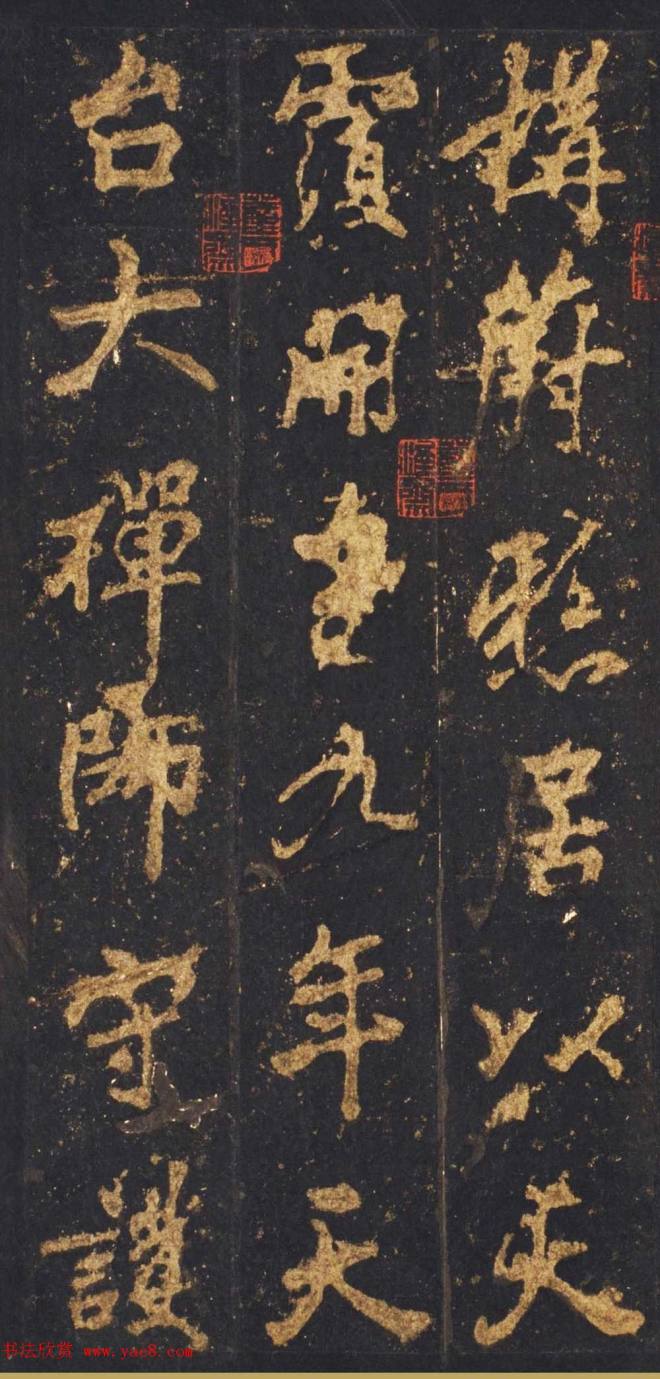 搆蔚居以
開皇九年天
台大禪師守護
书法欣赏 www.yac8.com